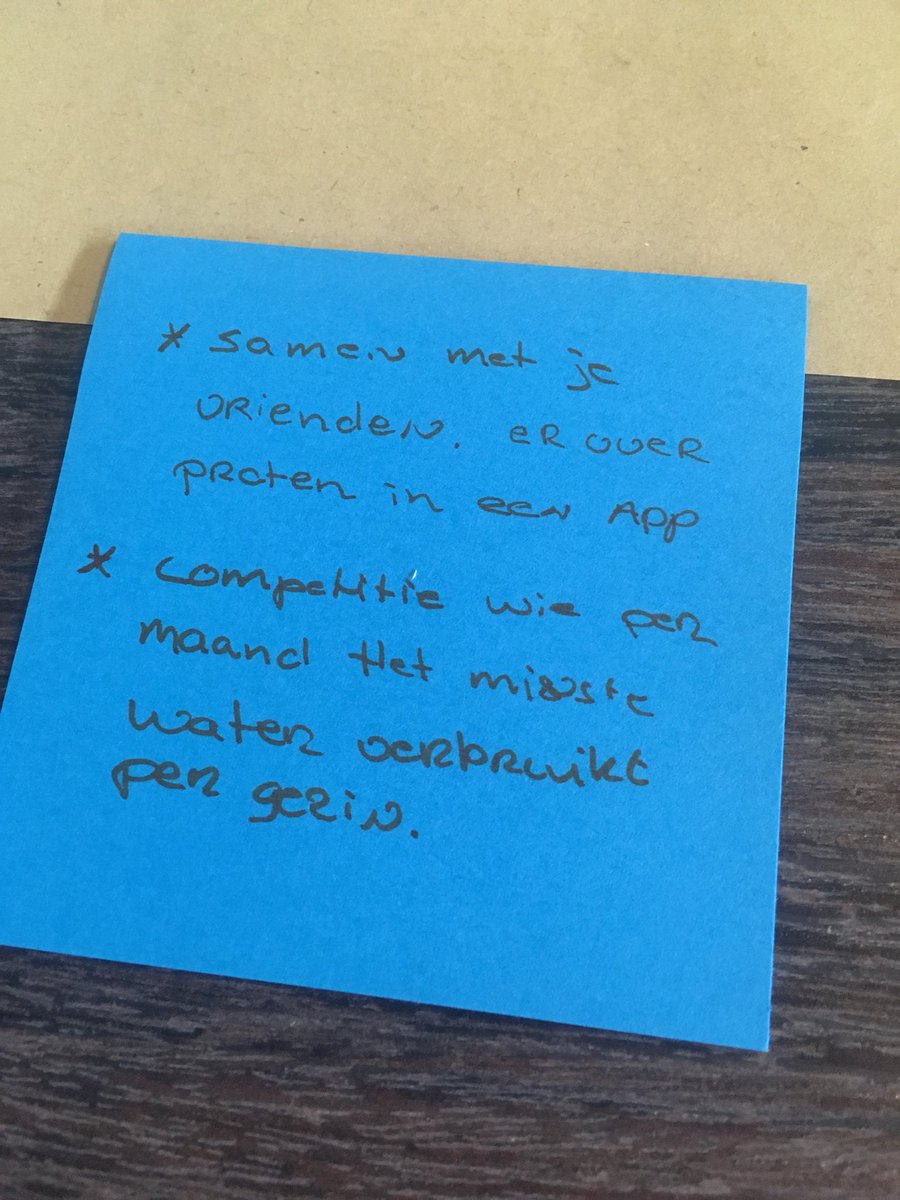 * samen met je
vrienden. er over
praten in een App
* competitie wie per
maand Het minste
water verbruikt
per gezin.